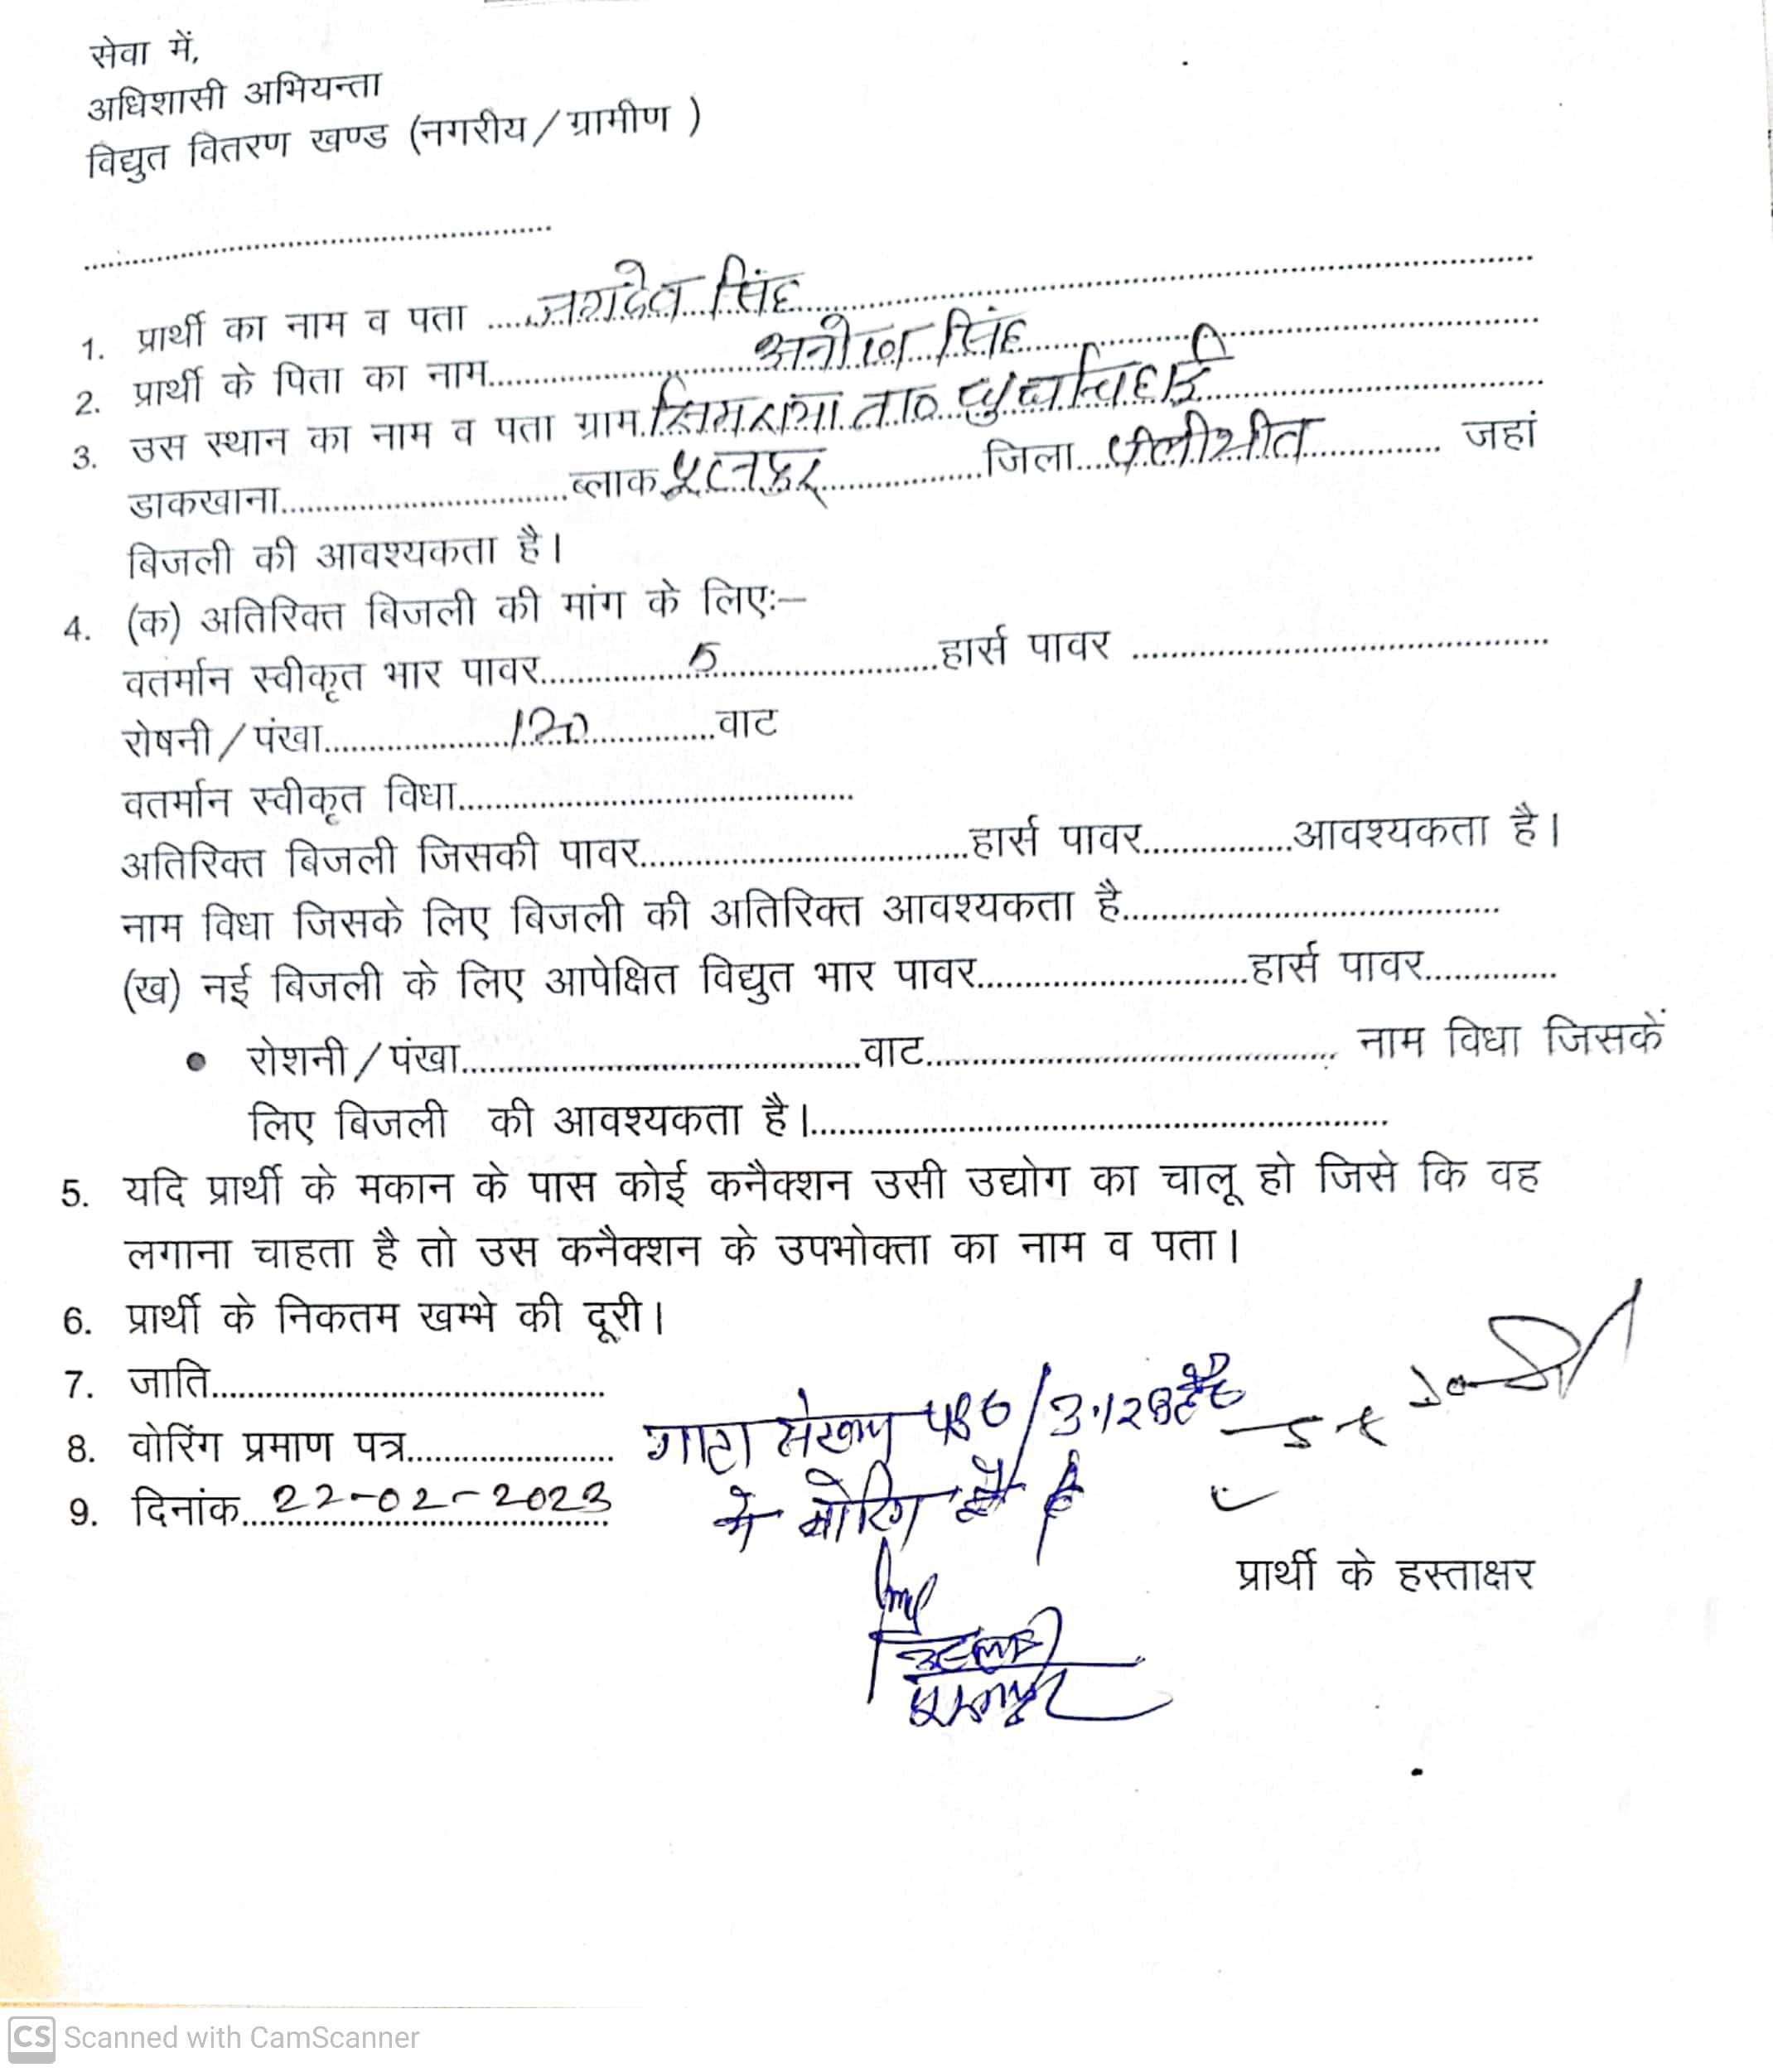 सेवा में,
अधिशासी अभियन्ता
विद्युत वितरण खण्ड (नगरीय/ग्रामीण )
..................................................
1. प्रार्थी का नाम व पता ....जगदेव सिंह..................................................
2. प्रार्थी के पिता का नाम.................... सिंह..................................................
3. उस स्थान का नाम व पता ग्राम ता० घुघचिहाई..............................
डाकखाना..............................ब्लाक पूरनपुर...............जिला...पीलीभीत............. जहां
बिजली की आवश्यकता है।
4. (क) अतिरिक्त बिजली की मांग के लिएः–
वतर्मान स्वीकृत भार पावर...............5....................हार्स पावर ........................................
रोषनी/पंखा...................120...............वाट
वतर्मान स्वीकृत विधा........................................
अतिरिक्त बिजली जिसकी पावर.................................हार्स पावर...............आवश्यकता है।
नाम विधा जिसके लिए बिजली की अतिरिक्त आवश्यकता है......................................
(ख) नई बिजली के लिए आपेक्षित विद्युत भार पावर...........................हार्स पावर.............
• रोशनी/पंखा........................................वाट......................................... नाम विधा जिसकें
लिए बिजली की आवश्यकता है।..........................................................
5. यदि प्रार्थी के मकान के पास कोई कनैक्शन उसी उद्योग का चालू हो जिसे कि वह
लगाना चाहता है तो उस कनैक्शन के उपभोक्ता का नाम व पता।
6. प्रार्थी के निकतम खम्भे की दूरी।
7. जाति.......................................
8. वोरिंग प्रमाण पत्र.....................
गाटा संख्या
9. दिनांक...22-02-2023
में बोरिंग है
प्रार्थी के हस्ताक्षर
पूरनपुर
CS Scanned with CamScanner